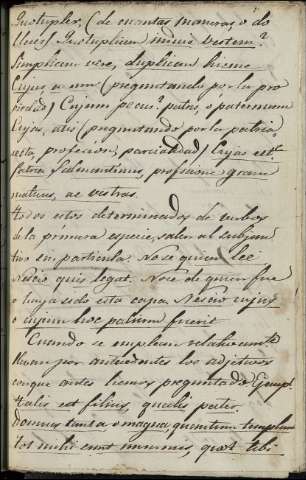 Quotuplex, (de cuantas maneras, o do
bleces) Quotuplicem induis vestem?
Simplicem vere, duplicem hieme
Cujus a um (preguntando por la pro
piedad) Cujum pecus? patris, o paternum
Cujas, atis (preguntando por la patria,
secta, profecion, parcialidad) Cujas est?
patria Salmantinus, profesione gram
maticus, ac vestras.
todos estos determinados de verbos
de la primera especie, salen al subjun
tivo sin particula. No se quien lee
Nescio quis legat. No se de quien fue
o haya sido esta capa. Nescio cujus
o cujum hoc palium fuerit
Cuando se emplean relativamte
llevan por antecedentes los adjetivos
conque antes hemos preguntado Gempl.
talis est filius, qualis pater.
domus tanta o magna, quantum templum
tot mihi sunt nummi, quot tibi